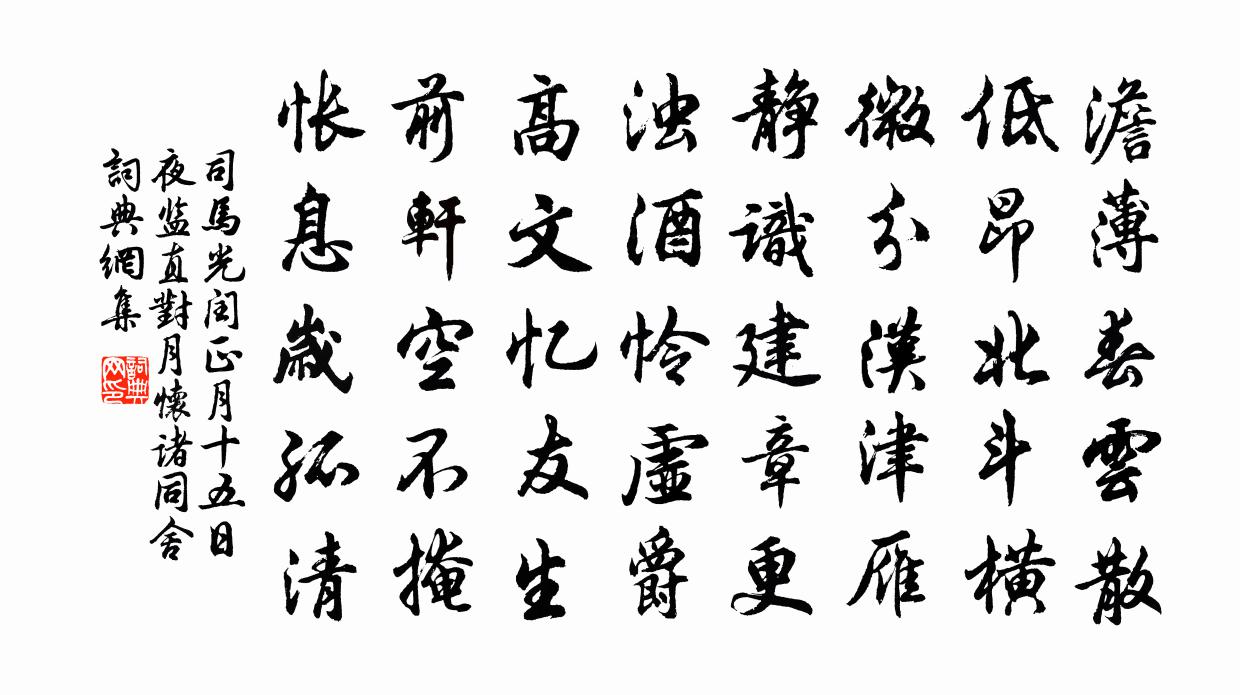 澹薄春雲散
低昂北斗橫
微分漢津雁
静識建章更
浊酒怜虛爵
高文忆友生
前軒空不掩
怅息歲孤清
司馬光闰正月十五日
夜监直對月懷诸同舍
詞典網集
詞典网印